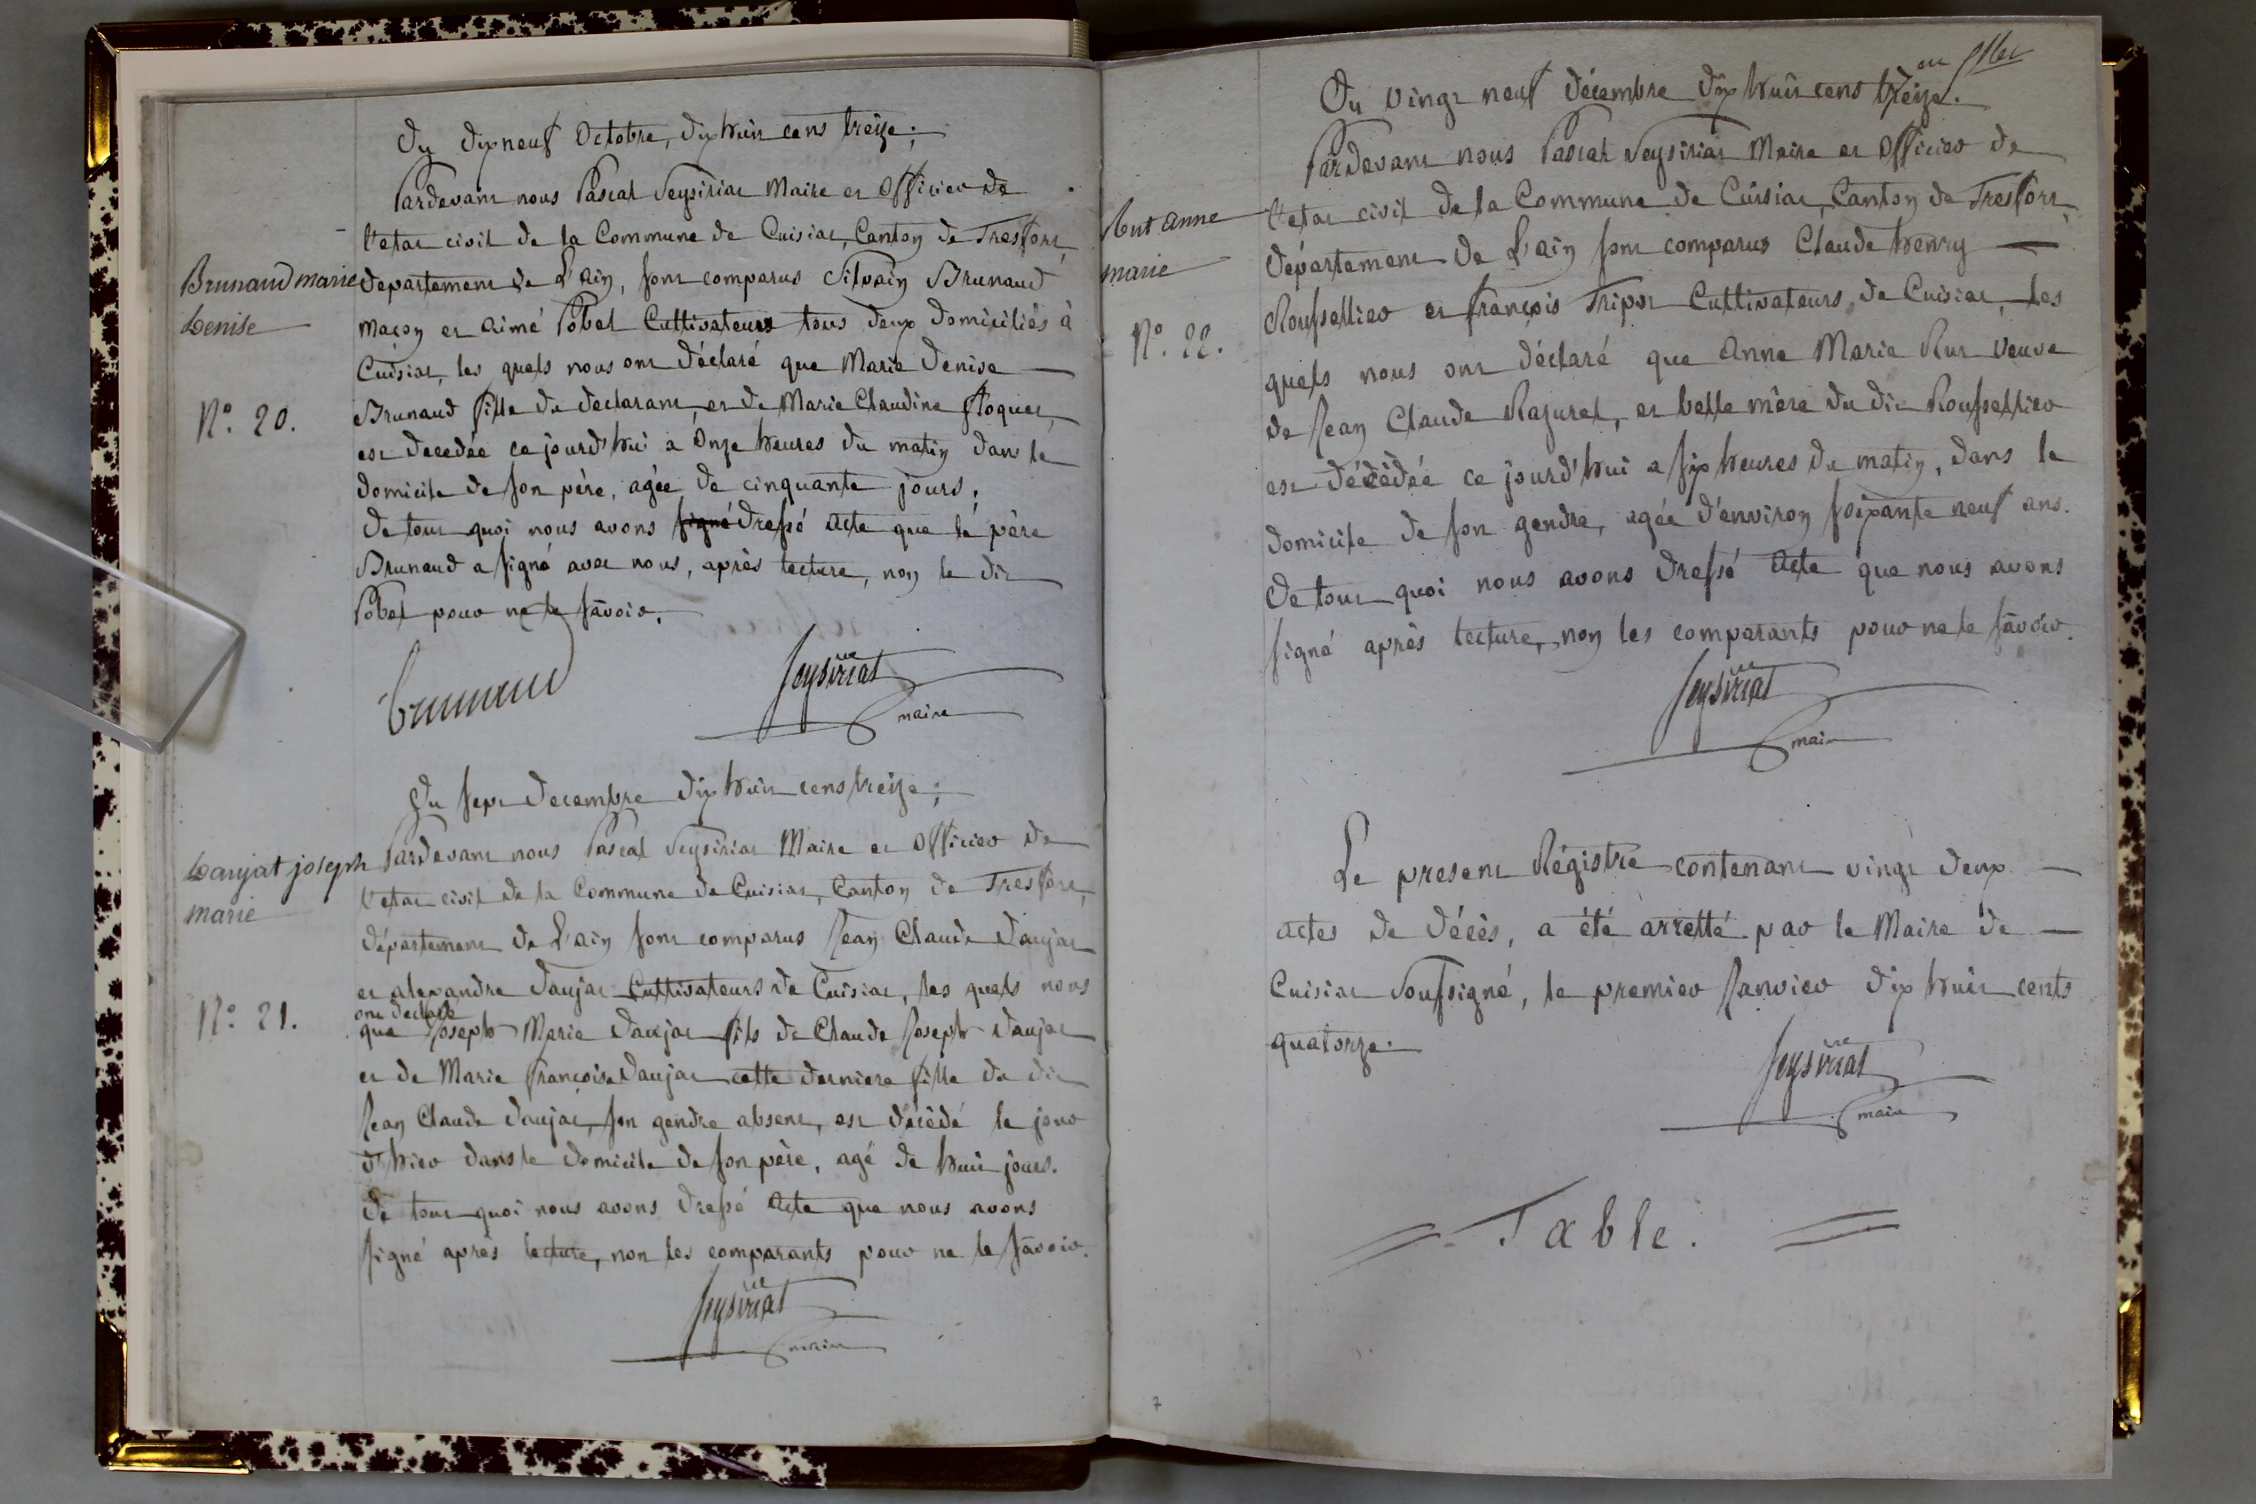 Du dix neuf Octobre, dix huit cens treize;
Pardevant nous Pascal Seysiriat Maire et Officier de
l'etat civil de la Commune de Cuisiat, Canton de Tresfort,
Brunaud marie
denise
departement de L'ain, sont comparus Silvain Brunaud
maçon et aimé Pobel Cultivateurs tous deux domiciliés à
Cuisiat, les quels nous ont déclaré que Marie Denise
N.º 20.
Brunaud fille du declarant, et de Marie Claudine Floquet,
est decedée ce jourd'hui a Onze heures du matin dans le
domicile de son père, agée de cinquante jours.
de tout quoi nous avons signé dressé acte que le père
Brunaud a signé avec nous, après lecture, non le dit
Pobel pour ne le sàvoir.
brunaud
Seysiriat
maire
Du sept decembre dix huit cens treize;
daujat joseph
marie
Pardevant nous Pascal Seysiriat Maire et Officier de
l'etat civil de la Commune de Cuisiat, Canton de Tresfort,
département de L'ain sont comparus Jean Claude Daujat
et alexandre Daujat Cultivateurs de Cuisiat, les quels nous
N.º 21.
ont declaré
que Joseph Marie Daujat fils de Claude Joseph Daujat
et de Marie françoise Daujat cette derniere fille du dit
Jean Claude Daujat, son gendre absent, est décédé le jour
d'hier dans le domicile de son père, agé de huit jours.
De tout quoi nous avons dressé Acte que nous avons
signé après lecture, non les comparants pour ne le sàvoir.
Seysiriat
maire
Du vingt neuf décembre dix huit cens treize.
Pardevant nous Pascal Seysiriat Maire et Officier de
Rut anne
marie
l'etat civil de la Commune de Cuisiat, Canton de Tresfort,
département de L'ain sont comparus Claude henry
N.º 22.
Roussellier et françois Tripoz Cultivateurs de Cuisiat, les
quels nous ont déclaré que Anne Marie Rut veuve
de Jean Claude Razurel, et belle mère du dit Roussellier
est décédée ce jourd'hui a six heures du matin, dans le
domicile de son gendre, agée d'environ soixante neuf ans.
De tout quoi nous avons dressé Acte que nous avons
signé après lecture, non les comparants pour ne le sàvoir.
Seysiriat
maire
Le present Régistre contenant vingt deux
actes de décès, a été arretté par le Maire de
Cuisiat Soussigné, le premier Janvier dix huit cents
quatorze.
Seysiriat
maire
Table.
7